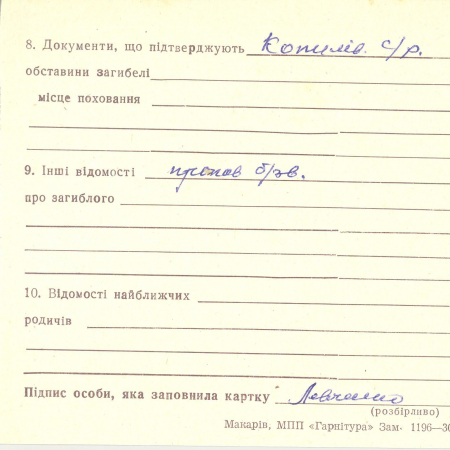 8. Документи, що підтверджують Копилів. с/р.
обставини загибелі
місце поховання
9. Інші відомості пропав б/зв.
про загиблого
10. Відомості найближчих
родичів
Підпис особи, яка заповнила картку
(розбірливо)
Макарів, МПП «Гарнітура» Зам- 1196—30